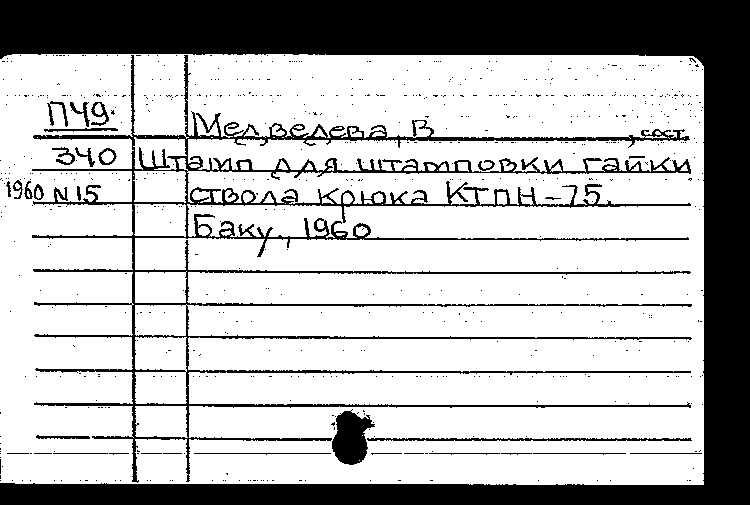 ПЧ9.
Медведева, В , сост.
340 Штамп для штамповки гайки
1960 N15 ствола крюка КТПН-75.
Баку., 1960